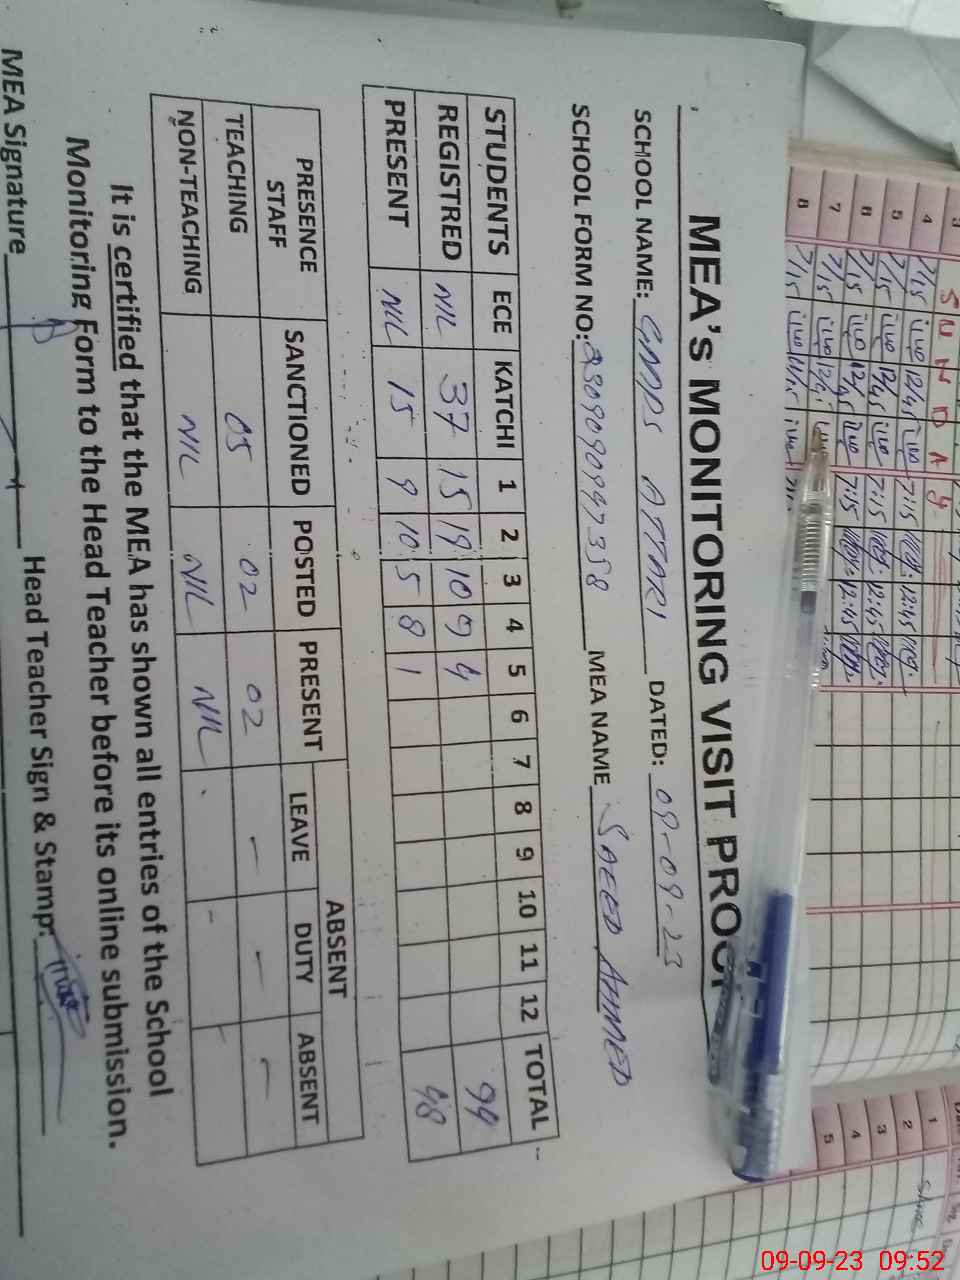 MEA's MONITORING VISIT PROOF
SCHOOL NAME: GBPS ATTARI DATED: 09-09-23
SCHOOL FORM NO: MEA NAME SAEED AHMED
STUDENTS ECE KATCHI 1 2 3 4 5 6 7 8 9 10 11 12 TOTAL
REGISTRED NIL 37 15 19 10 09 4 94
PRESENT NIL 15 9 10 5 8 1 48
PRESENCE STAFF SANCTIONED POSTED PRESENT ABSENT
LEAVE DUTY ABSENT
TEACHING 05 02 02 - - -
NON-TEACHING NIL NIL NIL
It is certified that the MEA has shown all entries of the School
Monitoring Form to the Head Teacher before its online submission.
MEA Signature Head Teacher Sign & Stamp:
SUNDAY
4 7/15 12/45 7:15 12:45
5 7/15 12/45 7:15 12:45
6 7/15 12/45 7:15 12:45
7 7/15
8 7/15
1
2
3
4
5
09-09-23 09:52